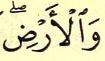 وَٱلْأَرْضِۖ